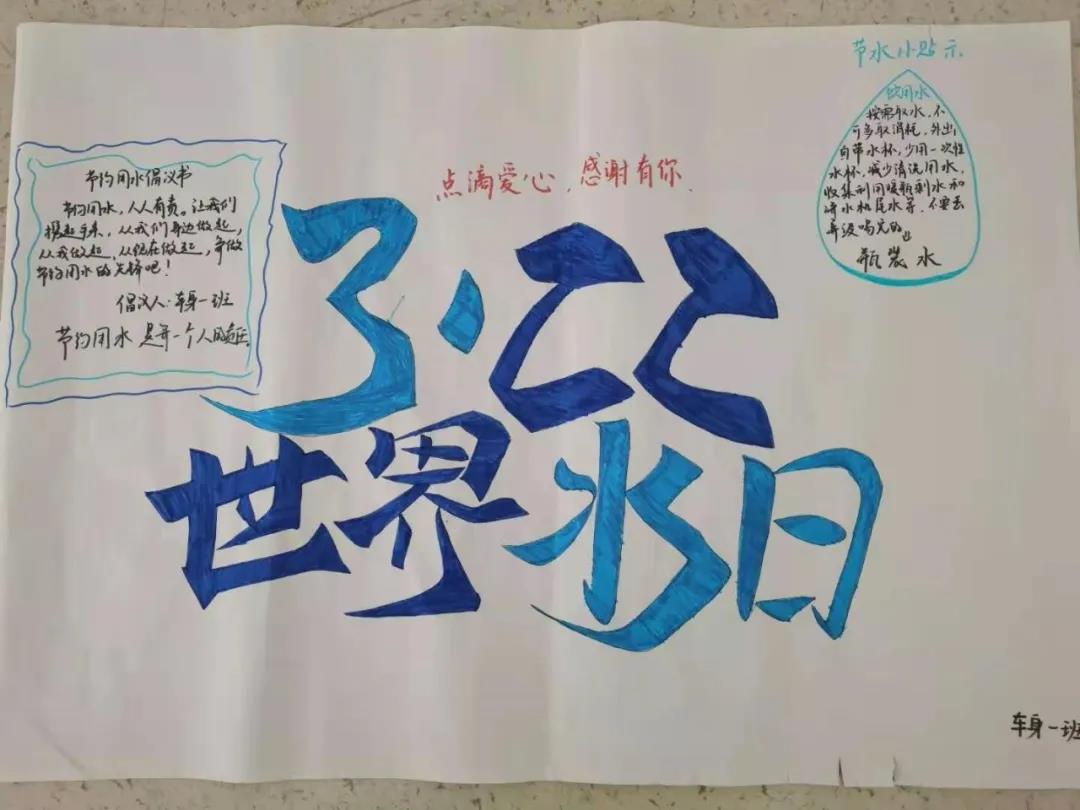 节水小贴示
饮用水
按需取水,不
可多取消耗,外出
自带水杯,少用一次性
水杯,减少清洗用水,
收集利用暖瓶剩水和
水杯尾水等,不要去
喝完的
瓶装水
节约用水倡议书
节约用水,人人有责。让我们
携起手来,从我们身边做起,
从我做起,从现在做起,争做
节约用水的先锋吧!
倡议人:车身一班
节约用水 是每一个人的责任。
点滴爱心,感谢有你.
3·22
世界水日
车身一班